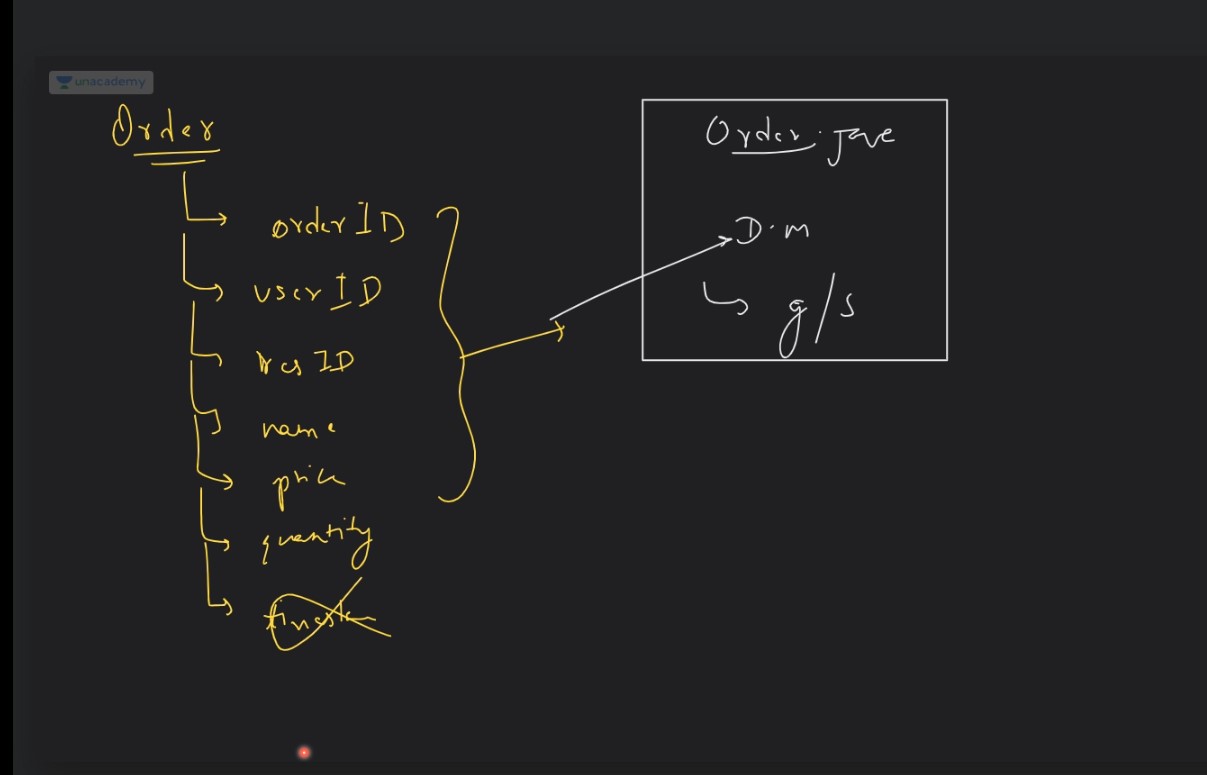 unacademy
Order
orderID
userID
resID
name
price
quantity
Order.java
D.m
g/s